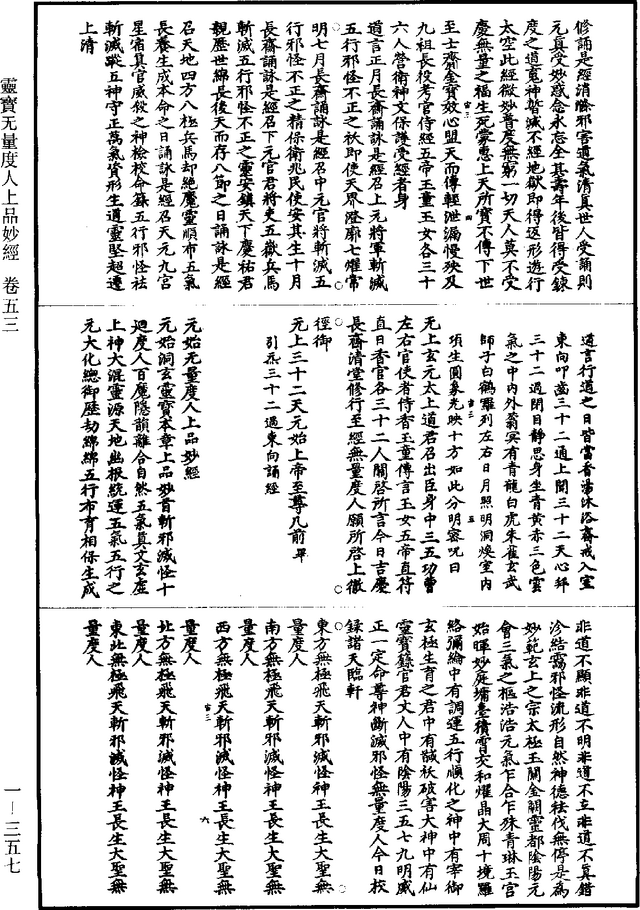 修誦是經消除邪害道氣清真世人受誦則
元真受妙惑念永忘全其壽年後皆得受鍊
度之道寃神皆滅不經地獄即得返形遊行
太空此經微妙普度無窮一切天人莫不受
慶無量之福生死蒙惠上天所寶不傳下世
至士齎金寶效心盟天而傳輕泄漏慢殃及
九祖長役考官侍經五帝玉童玉女各三十
六人營衛神文保護受經者身
道言正月長齋誦詠是經召上元將軍斬滅
五行邪怪不正之祅即使天界澄廓七曜常
明七月長齋誦詠是經召中元官將斬滅五
行邪怪不正之精保衛兆民使安其生十月
長齋誦詠是經召下元官君將吏五嶽兵馬
斬滅五行邪怪不正之靈安鎮天下慶祐君
親歷世綿長後天而存八節之日誦詠是經
召天地四方八極兵馬却絕魔靈順布五氣
長養生成本命之日誦詠是經召天元九宮
星宿真官威敘之神檢校命籙五行邪怪祛
斬滅蹤五神守正萬氣資形生道靈堅超遷
上清
道言行道之日皆當香湯沐浴齋戒入室
東向叩齒三十二通上聞三十二天心拜
三十二過閉目靜思身坐青黃赤三色雲
氣之中内外蓊冥有青龍白虎朱雀玄武
師子白鶴羅列左右日月照明洞煥室内
項生圓象光映十方如此分明密呪曰
无上玄元太上道君召出臣身中三五功曹
左右官使者侍香玉童傳言玉女五帝直符
直日香官各三十二人關啓所言今日吉慶
長齋清堂修行至經無量度人願所啓上徹
徑御
元上三十二天元始上帝至尊几前畢
引炁三十二過東向誦經
元始无量度人上品妙經
元始洞玄靈寶本章上品妙首斬邪滅怪十
迴度人百魔隱韻離合自然五氣真文玄虛
上神大混靈源天地幽根統運五氣五行之
元大化總御歷劫綿綿五行布育相保生成
非道不顯非道不明非道不立非道不真錯
沴結竊邪怪流形自然神德祛伐無停是為
妙範玄上之宗太極玉闕金闕靈都陰陽元
會三氣之樞浩浩元氣乍合乍殊青琳玉宮
始暉妙庭墉臺積霄交和燿晶大周十境羅
絡彌綸中有調運五行順化之神中有宰御
玄極生育之君中有馘祅破害大神中有仙
靈寶籙官君丈人中有陰陽三五七九明威
正一定命尊神斷滅邪怪無量度人今日校
錄諸天臨軒
東方無極飛天斬邪滅怪神王長生大聖無
量度人
南方無極飛天斬邪滅怪神王長生大聖無
量度人
西方無極飛天斬邪滅怪神王長生大聖無
量度人
北方無極飛天斬邪滅怪神王長生大聖無
量度人
東北無極飛天斬邪滅怪神王長生大聖無
量度人
靈寶无量度人上品妙經 卷五三
一－三五七